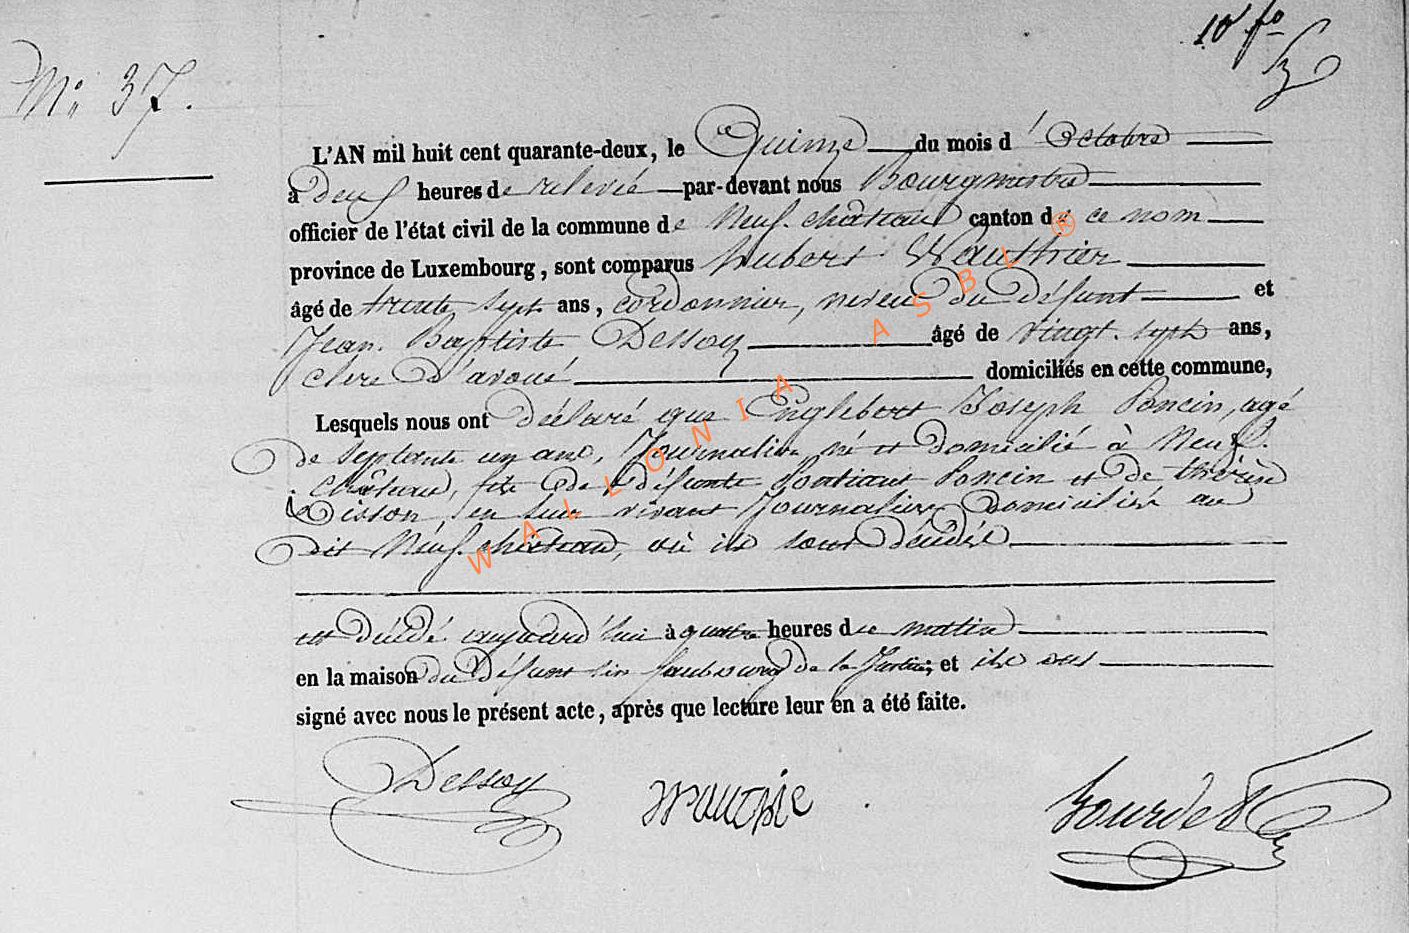 10 fo
No 37.
L'AN mil huit cent quarante-deux, le Quinze du mois d'Octobre
à Deux heures de relevée par-devant nous Bourgmestre
officier de l'état civil de la commune de Neufchâteau canton de ce nom
province de Luxembourg, sont comparus hubert Wauthier
âgé de trente sept ans, cordonnier, neveu du défunt et
Jean Baptiste Dessoy âgé de vingt sept ans,
clerc d'avoué domiciliés en cette commune,
Lesquels nous ont déclaré que Englebert Joseph Poncin, agé
de Septante un ans, Journalier, né et domicilié à Neuf-
château, fils de défunts Pontian Poncin et de thérèse
en leur vivant Journaliers domiciliés au
dit Neufchâteau, où ils sont décédés
est décédé aujourd'hui à quatre heures du matin
en la maison du défunt faubourg de la Justice, et ils ont
signé avec nous le présent acte, après que lecture leur en a été faite.
Dessoy Wauthie Bourdet
WALLONIA ASBL ®